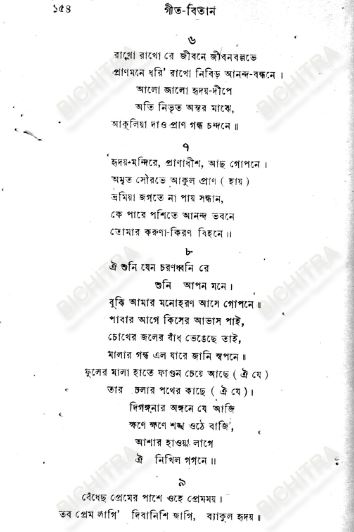 ১৫৪ গীত-বিতান
৬
রাখো রাখো রে জীবনে জীবনবল্লভে
প্রাণমনে ধরি' রাখো নিবিড় আনন্দ-বন্ধনে।
আলো জ্বালো হৃদয়-দীপে
অতি নিভৃত অন্তর মাঝে,
আকুলিয়া দাও প্রাণ গন্ধ চন্দনে॥
৭
হৃদয়-মন্দিরে, প্রাণাধীশ, আছ গোপনে।
অমৃত সৌরভে আকুল প্রাণ (হায়)
ভ্রমিয়া জগতে না পায় সন্ধান,
কে পারে পশিতে আনন্দ ভবনে
তোমার করুণা-কিরণ বিহনে॥
৮
ঐ শুনি যেন চরণধ্বনি রে
শুনি আপন মনে।
বুঝি আমার মনোহরণ আসে গোপনে॥
পাবার আগে কিসের আভাস পাই,
চোখের জলের বাঁধ ভেঙেছে তাই,
মালার গন্ধ এল যারে জানি স্বপনে॥
ফুলের মালা হাতে ফাগুন চেয়ে আছে (ঐ যে)
তার চলার পথের কাছে (ঐ যে)।
দিগঙ্গনার অঙ্গনে যে আজি
ক্ষণে ক্ষণে শঙ্খ ওঠে বাজি,
আশার হাওয়া লাগে
ঐ নিখিল গগনে॥
৯
বেঁধেছ প্রেমের পাশে ওহে প্রেমময়।
তব প্রেম লাগি' দিবানিশি জাগি, ব্যাকুল হৃদয়।
BICHITRA